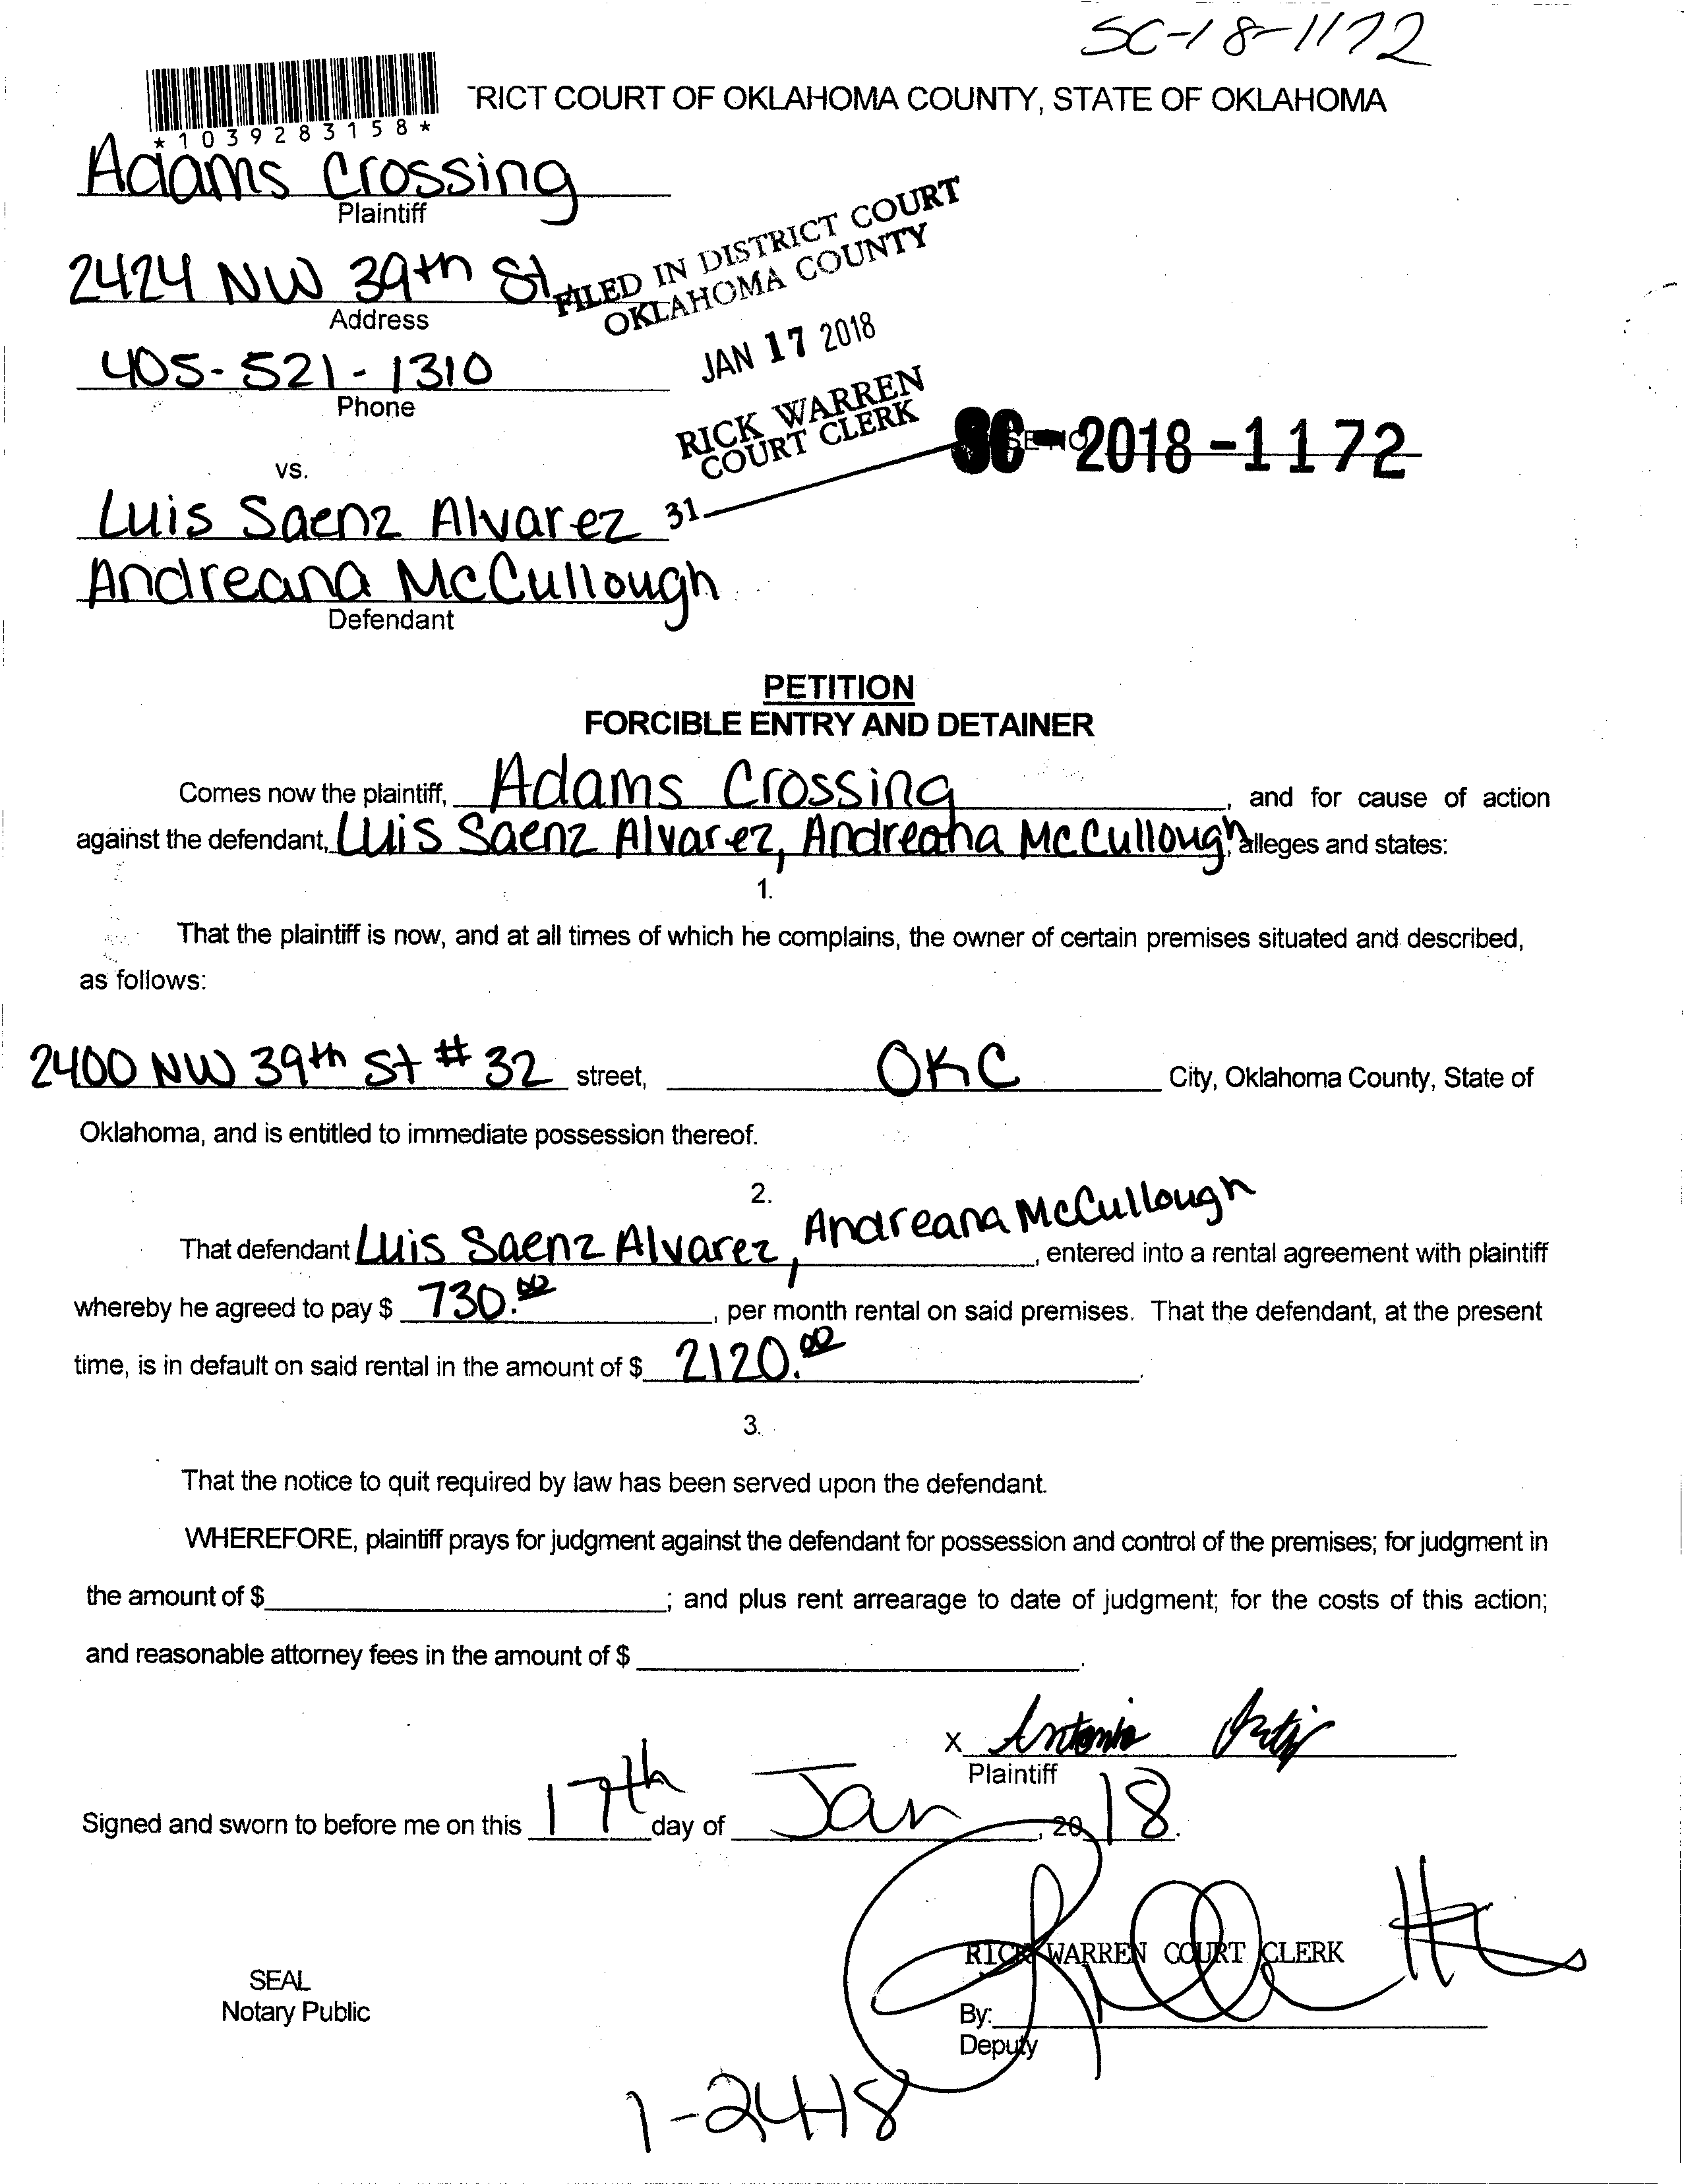 SC-18-1172
RICT COURT OF OKLAHOMA COUNTY, STATE OF OKLAHOMA
*1039283158*
Adams Crossing
Plaintiff
2424 NW 39th St
Address
405-521-1310
Phone
FILED IN DISTRICT COURT
OKLAHOMA COUNTY
JAN 17 2018
RICK WARREN
COURT CLERK
31
SC-2018-1172
vs.
Luis Saenz Alvarez
Andreana McCullough
Defendant
PETITION
FORCIBLE ENTRY AND DETAINER
Comes now the plaintiff, Adams Crossing, and for cause of action
against the defendant, Luis Saenz Alvarez, Andreana McCullough, alleges and states:
1.
That the plaintiff is now, and at all times of which he complains, the owner of certain premises situated and described,
as follows:
2400 NW 39th St # 32 street, OKC City, Oklahoma County, State of
Oklahoma, and is entitled to immediate possession thereof.
2.
That defendant Luis Saenz Alvarez, Andreana McCullough, entered into a rental agreement with plaintiff
whereby he agreed to pay $ 730.00, per month rental on said premises. That the defendant, at the present
time, is in default on said rental in the amount of $ 2120.00.
3.
That the notice to quit required by law has been served upon the defendant.
WHEREFORE, plaintiff prays for judgment against the defendant for possession and control of the premises; for judgment in
the amount of $ ; and plus rent arrearage to date of judgment; for the costs of this action;
and reasonable attorney fees in the amount of $ .
X Antonio
Plaintiff
Signed and sworn to before me on this 17th day of Jan, 20 18.
RICK WARREN COURT CLERK
SEAL
Notary Public
By:
Deputy
1-24-18